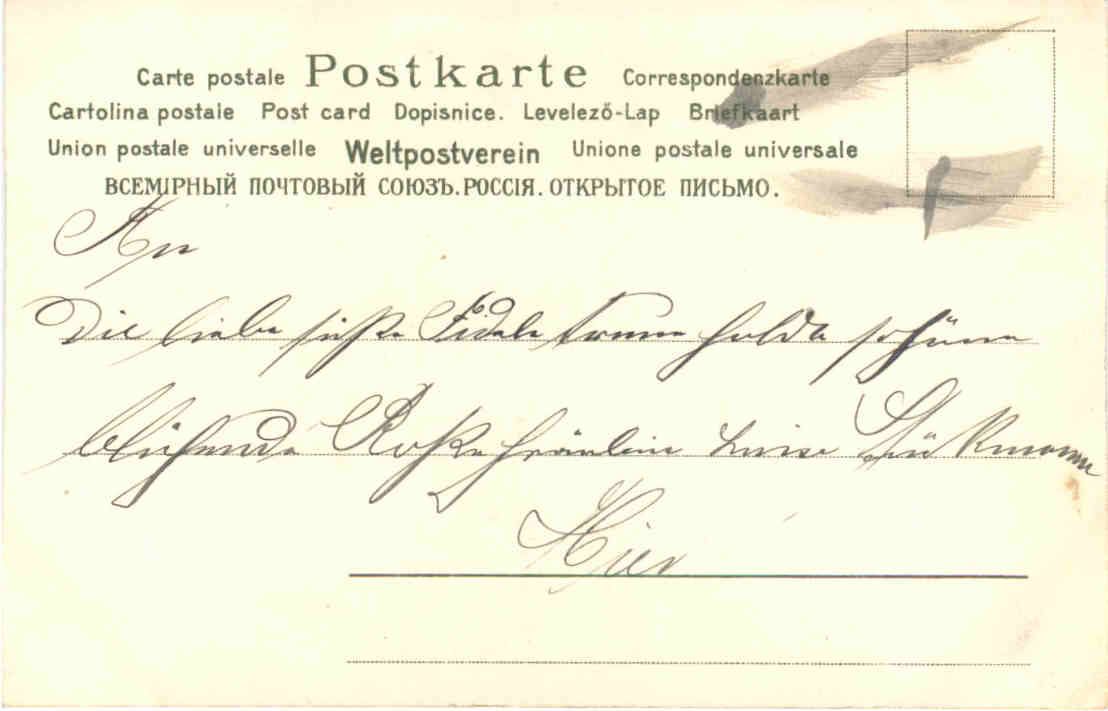 Carte postale Postkarte Correspondenzkarte
Cartolina postale Post card Dopisnice. Levelező-Lap Briefkaart
Union postale universelle Weltpostverein Unione postale universale
ВСЕМІРНЫЙ ПОЧТОВЫЙ СОЮЗЪ. РОССІЯ. ОТКРЫТОЕ ПИСЬМО.
An
Die liebe süße Fidele treue holde schöne
blühende Roße Fräulein Luise
Hier